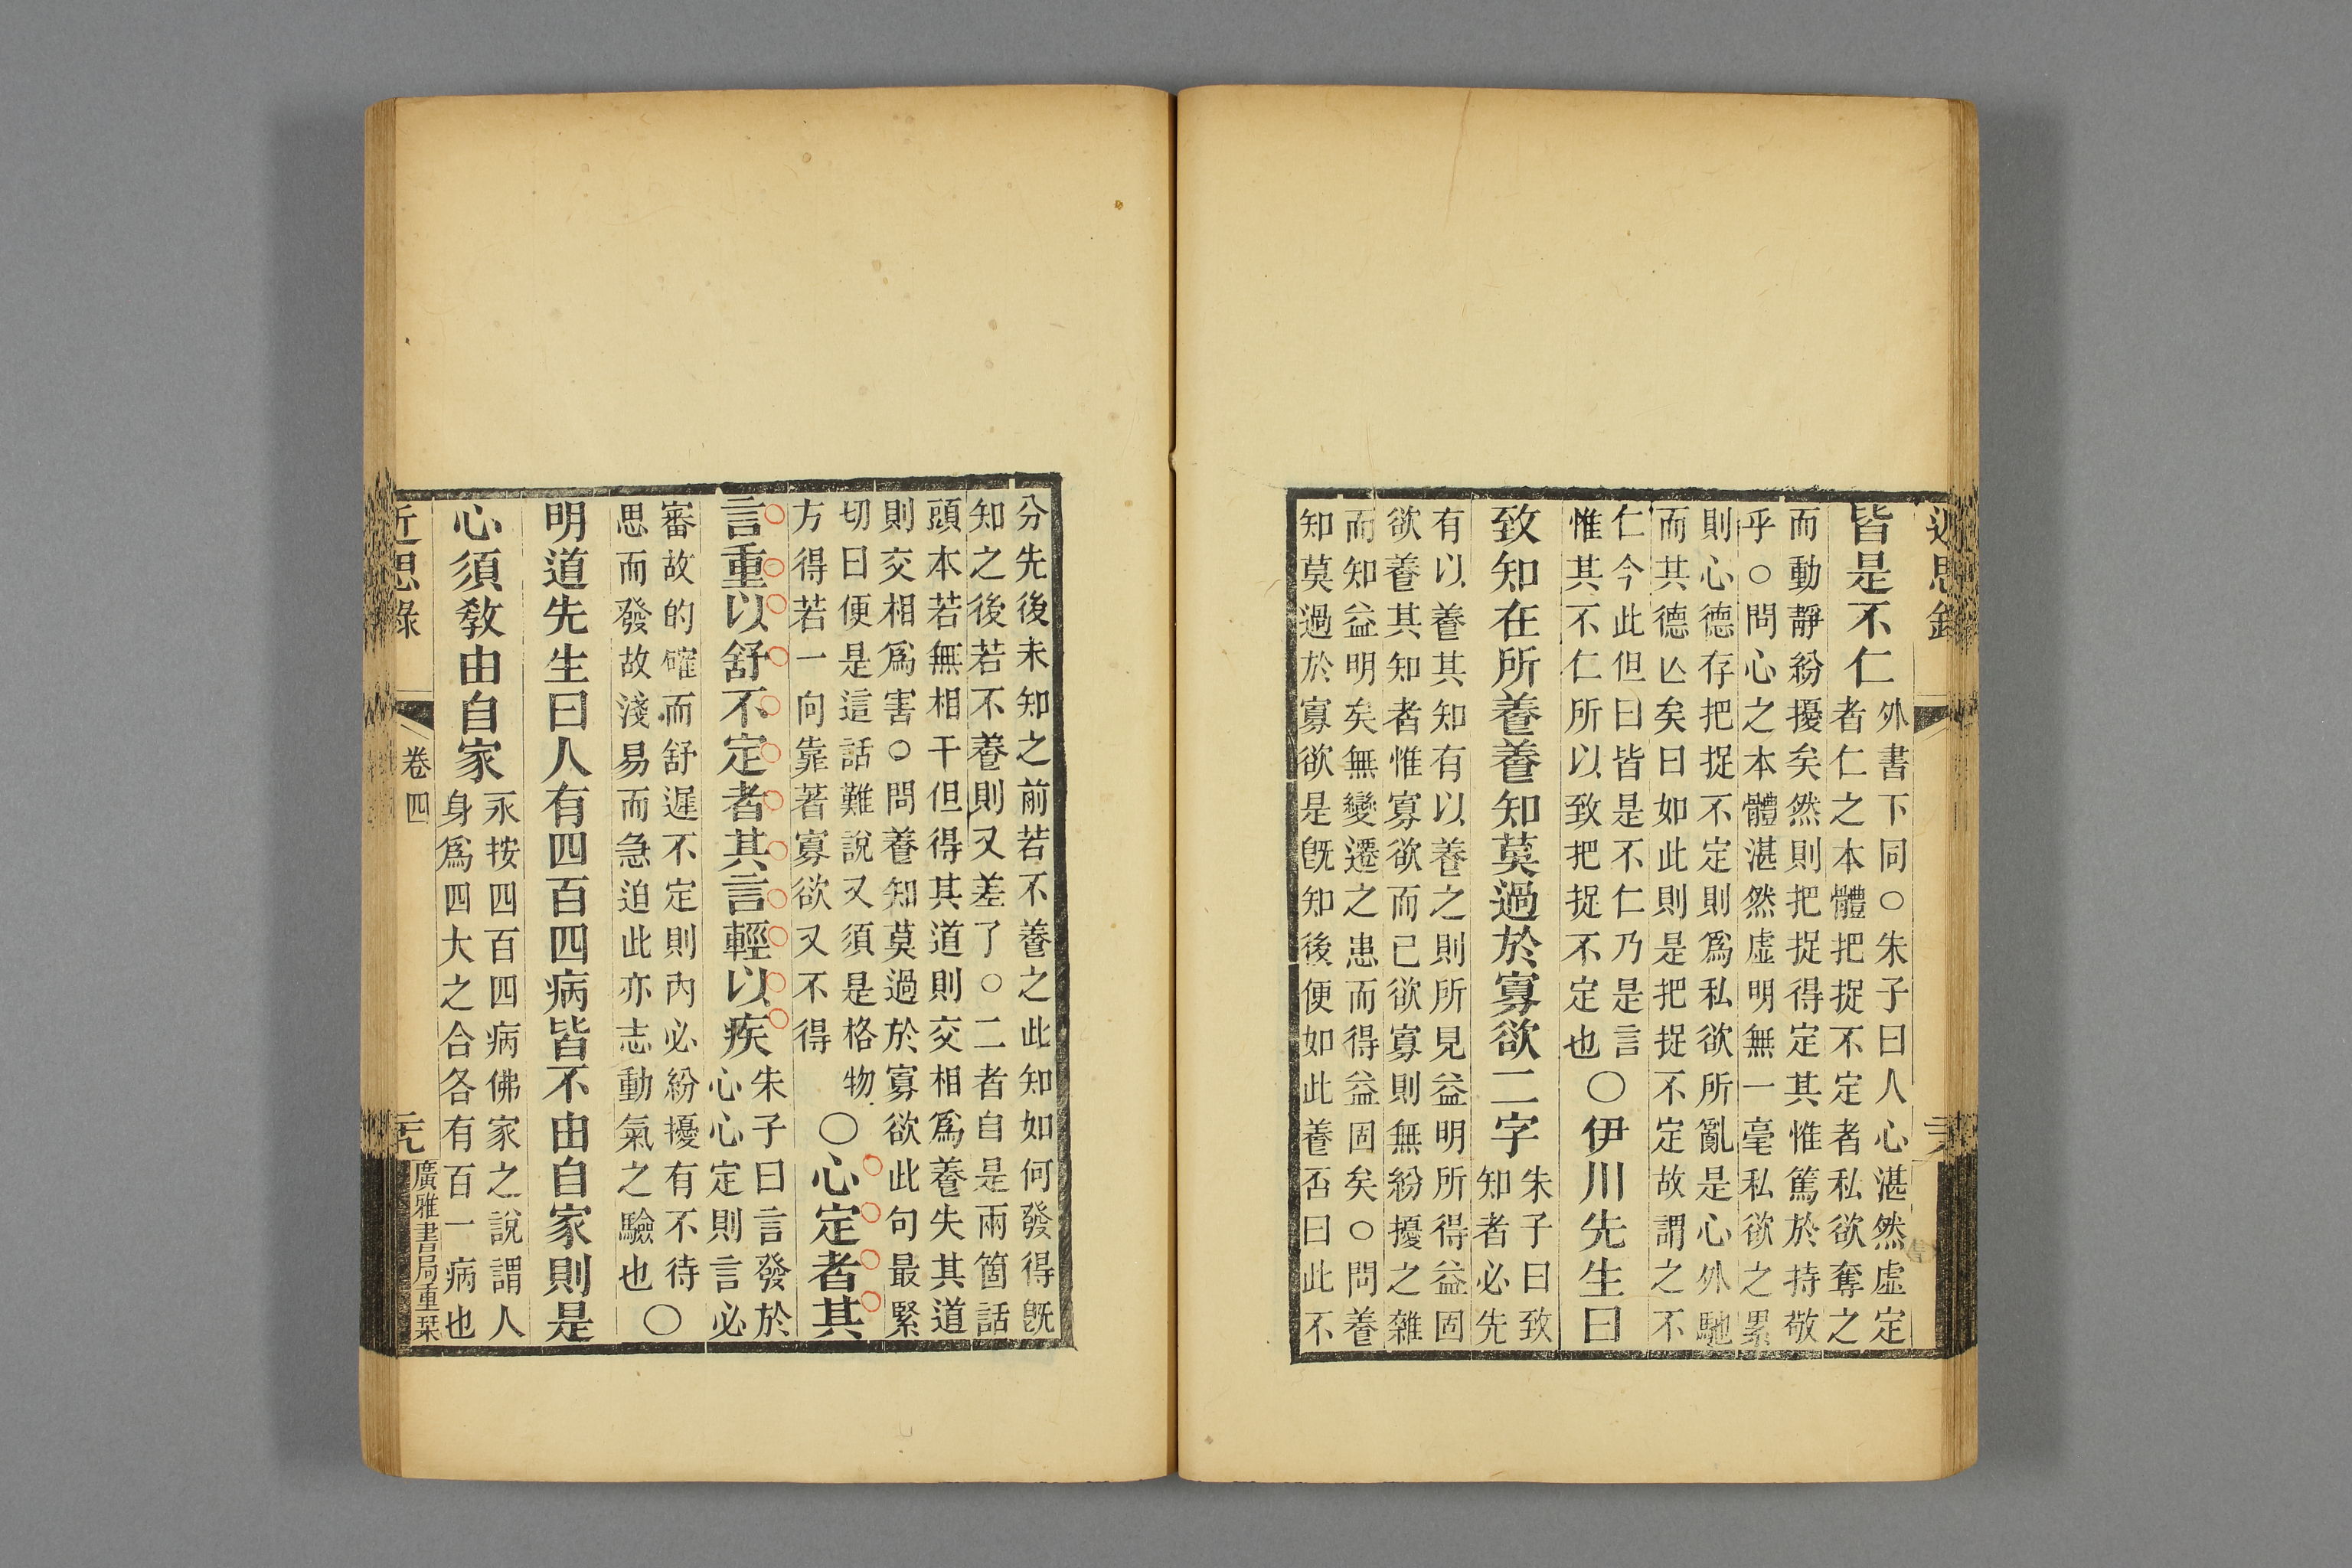 皆是不仁外書下同○朱子曰人心湛然虛定
者仁之本體把捉不定者私欲奪之
而動靜紛擾矣然則把捉得定其惟篤於持敬
乎○問心之本體湛然虛明無一毫私欲之累
則心德存把捉不定則爲私欲所亂是心外馳
而其德亾矣曰如此則是把捉不定故謂之不
仁今此但曰皆是不仁乃是言
惟其不仁所以致把捉不定也
○伊川先生曰
致知在所養養知莫過於寡欲二字朱子曰致
知者必先
有以養其知有以養之則所見益明所得益固
欲養其知者惟寡欲而已欲寡則無紛擾之雜
而知益明矣無變遷之患而得益固矣○問養
知莫過於寡欲是旣知後便如此養否曰此不
分先後未知之前若不養之此知如何發得旣
知之後若不養則又差了○二者自是兩箇話
頭本若無相干但得其道則交相爲養失其道
則交相爲害○問養知莫過於寡欲此句最緊
切曰便是這話難說又須是格物
方得若一向靠著寡欲又不得
○心定者其
言重以舒不定者其言輕以疾朱子曰言發於
心心定則言必
審故的確而舒遲不定則內必紛擾有不待
思而發故淺易而急迫此亦志動氣之驗也
○
明道先生曰人有四百四病皆不由自家則是
心須敎由自家永按四百四病佛家之說謂人
身爲四大之合各有百一病也
近思錄
卷四
廣雅書局重栞